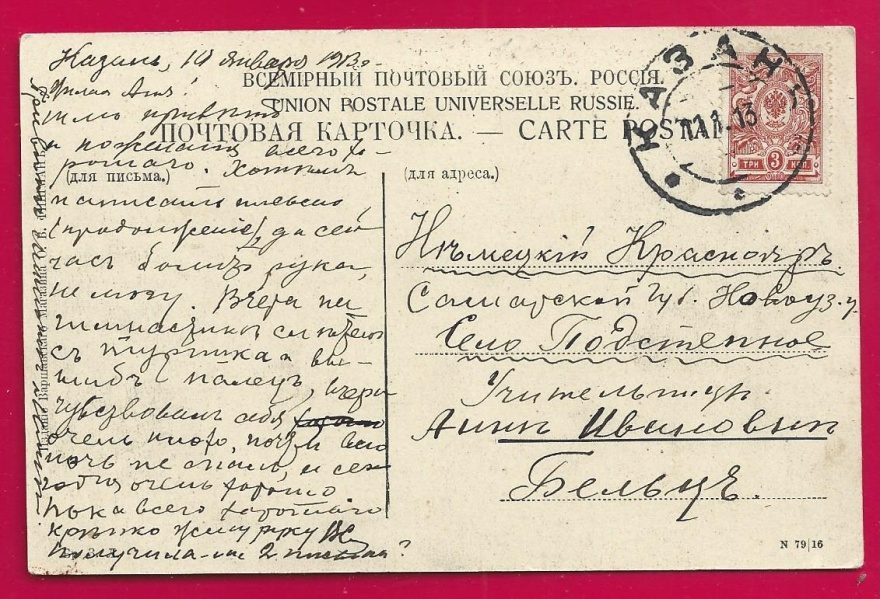 Казань, 10 января 1913 г.
ВСЕМІРНЫЙ ПОЧТОВЫЙ СОЮЗЪ. РОССІЯ.
UNION POSTALE UNIVERSELLE RUSSIE.
ПОЧТОВАЯ КАРТОЧКА. — CARTE POSTALE
КАЗАНЬ
11.1.13
ТРИ 3 КОП.
(для письма.)
(для адреса.)
Милая Аня!
Шлю приветъ
и пожелания всего хо-
рошаго. Хотелъ
написать письмо
(продолжение), да сей
часъ болитъ рука,
не могу. Вчера на
гимнастике
съ турника и вы-
шибъ палецъ, вчера
чувствовалъ себя
очень плохо, почти всю
ночь не спалъ, и се-
годня очень хорошо
Пока всего хорошаго
крепко жму руку
Получила-ли 2 письма?
Нѣмецкій Краснояръ
Самарской губ. Новоуз. у.
Село Подстепное
Учительницѣ
Аннѣ Ивановнѣ
Бельцъ.
N 79|16